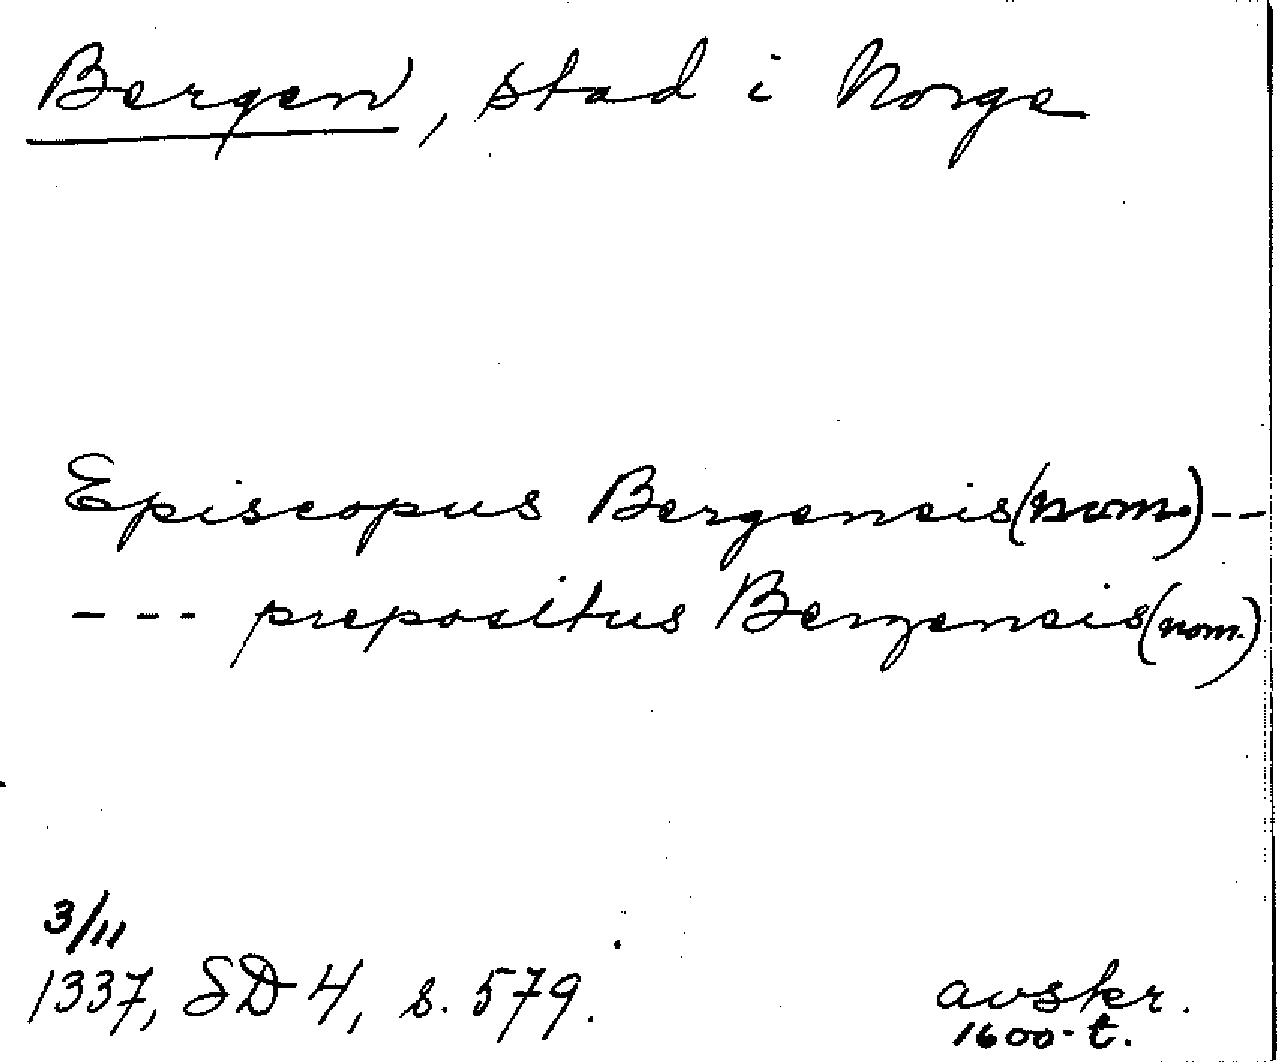 Bergen, stad i Norge
Episcopus Bergensis (nom.) --
--- prepositus Bergensis (nom.)
3/11
1337, SD 4, s. 579.
avskr.
1600-t.